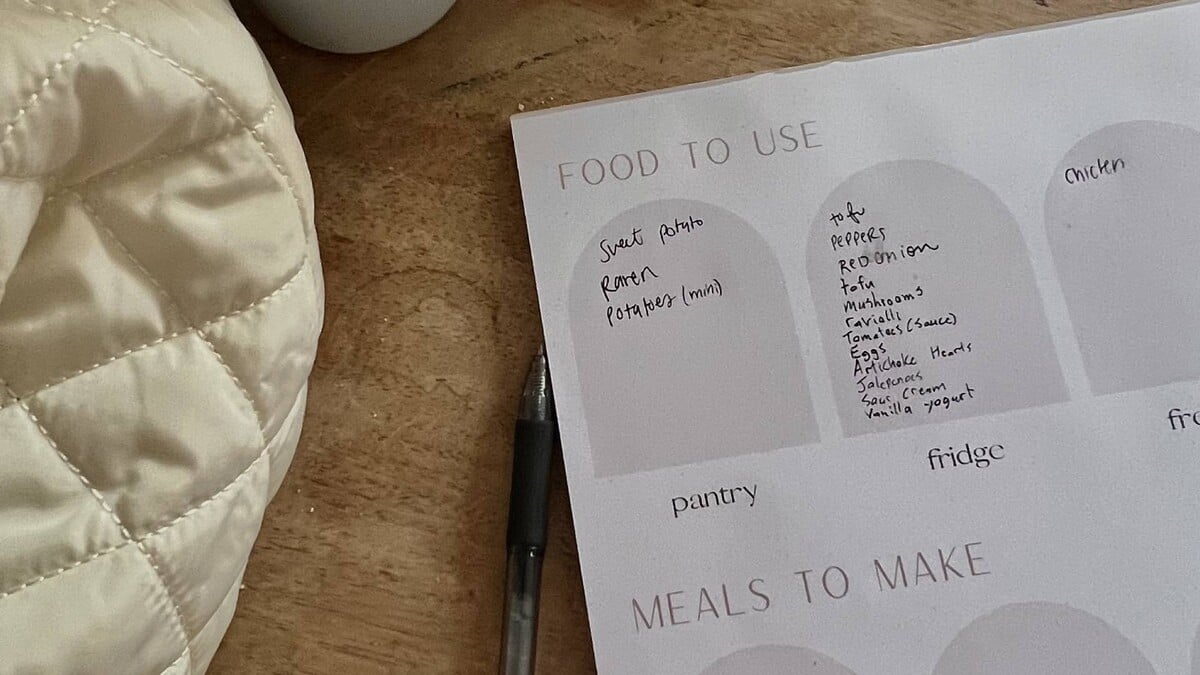 FOOD TO USE
Sweet potato
Ramen
Potatoes (mini)
pantry
tofu
PEPPERS
RED Onion
tofu
Mushrooms
ravioli
Tomatoes (sauce)
Eggs
Artichoke Hearts
Jalepenoes
Sour cream
Vanilla yogurt
fridge
Chicken
MEALS TO MAKE